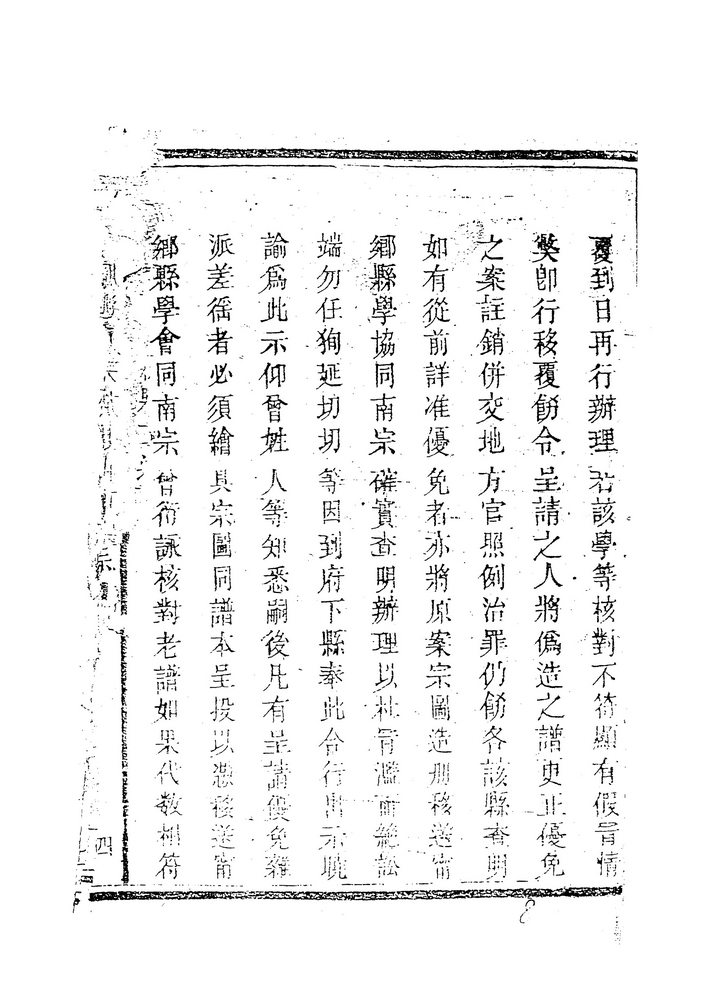 覆到日再行辦理若該學等核對不符顯有假冒情
獘卽行移覆飭令呈請之人將僞造之譜更正優免
之案註銷併交地方官照例治罪仍飭各該縣查明
如有從前詳准優免者亦將原案宗圖造册移送甯
鄉縣學協同南宗確實查明辦理以杜冒濫而絶訟
端勿任狥延切切等因到府下縣奉此合行出示曉
諭爲此示仰曾姓人等知悉嗣後凡有呈請優免雜
派差徭者必須繪具宗圖同譜本呈投以憑移送甯
鄉縣學會同南宗曾衍詠核對老譜如果代數相符
示
四
8